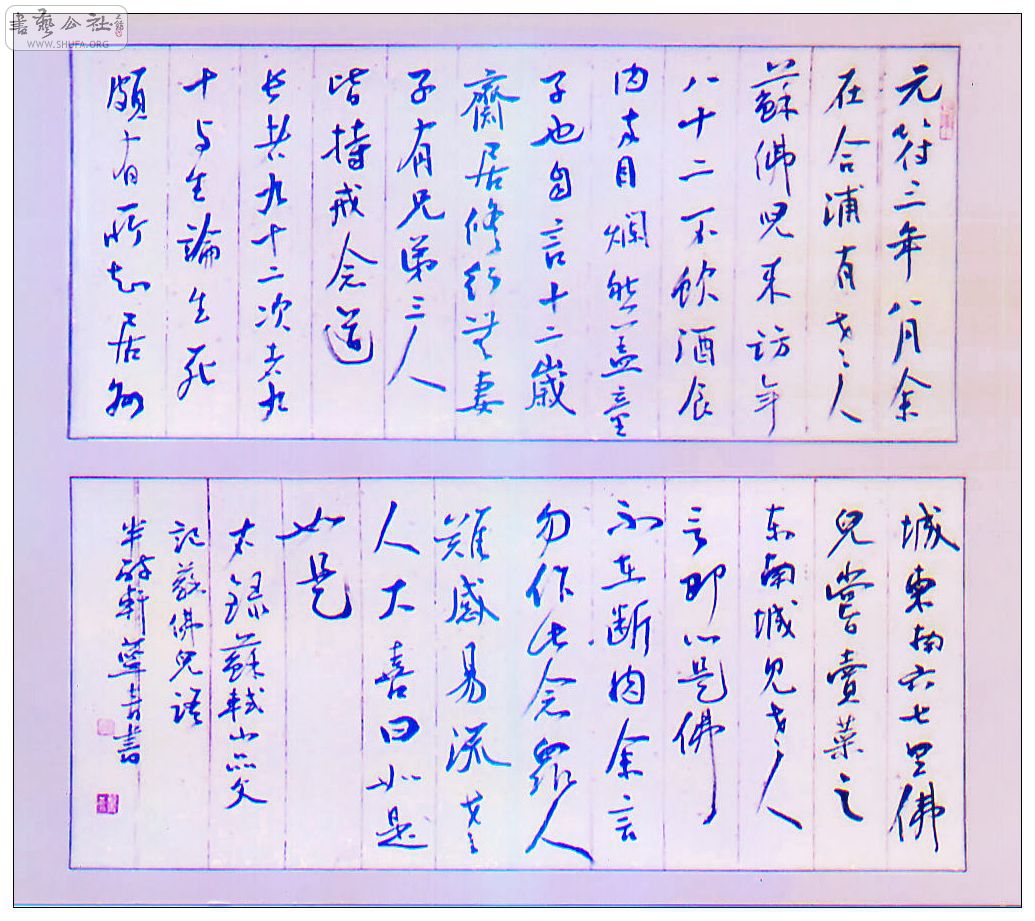 書藝公社
WWW.SHUFA.ORG
元符三年八月余
在合浦有老人
蘇佛兒来訪年
八十二不飲酒食
肉两目爛然盖童
子也自言十二歲
齋居修行無妻
子有兄弟三人
皆持戒念道
長者九十二次者九
十与生論生死
頗有所知居州
城東南六七里佛
兒嘗賣菜之
东南城見老人
言即心是佛
不在断肉余言
勿作此念眾人
難感易流老
人大喜曰如是
如是
右録蘇軾小品文
記蘇佛兒語
半 軒 書